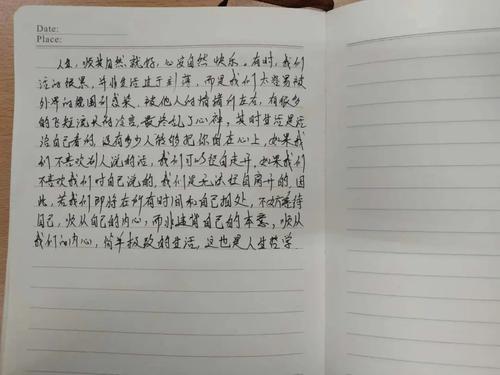 Date:
Place:
人生,顺其自然就好,心安自然快乐。有时,我们
活的很累,并非生活过于刻薄,而是我们太容易被
外界的氛围所感染,被他人的情绪所左右,有很多
的飞短流长的冷言,最终乱了心神,其时生活是活
给自己看的,没有多少人能够把你留在心上,如果我
们不喜欢别人说的话,我们可以径自走开,如果我们
不喜欢我们对自己说的,我们是无法径自离开的,因
此,若我们即将在所有时间和自己相处,不妨善待
自己,顺从自己的内心,而非违背自己的本意,顺从
我们的内心,简单极致的生活,这也是人生哲学